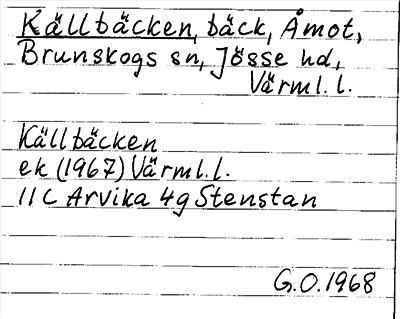 Källbäcken, bäck, Åmot,
Brunskogs sn, Jösse hd,
Värml. l.
Källbäcken
ek (1967) Värml. l.
11 C Arvika 4g Stenstan
G.O. 1968